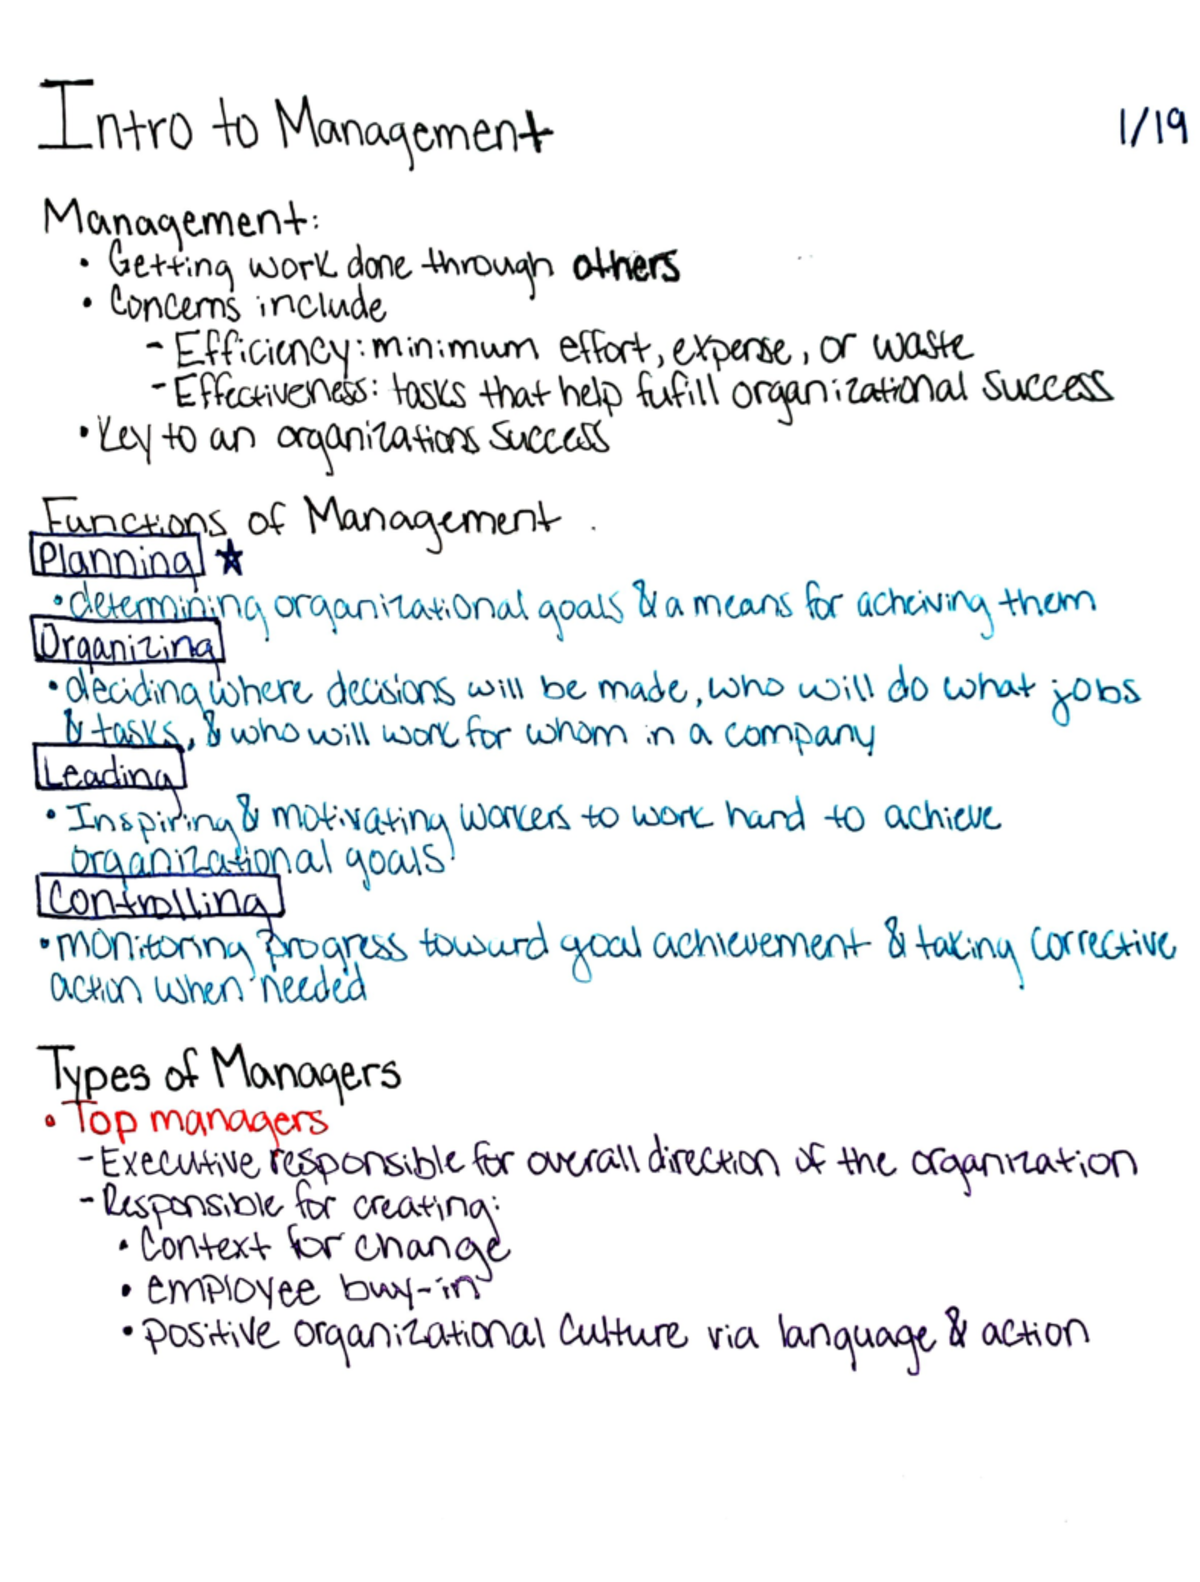 Intro to Management
1/19
Management:
• Getting work done through others
• Concerns include
- Efficiency: minimum effort, expense, or waste
- Effectiveness: tasks that help fufill organizational success
• Key to an organizations success
Functions of Management
Planning ★
• determining organizational goals & a means for acheiving them
Organizing
• deciding where decisions will be made, who will do what jobs
& tasks, & who will work for whom in a company
Leading
• Inspiring & motivating workers to work hard to achieve
organizational goals
Controlling
• monitoring progress toward goal achievement & taking corrective
action when needed
Types of Managers
• Top managers
- Executive responsible for overall direction of the organization
- Responsible for creating:
• Context for change
• employee buy-in
• positive organizational culture via language & action